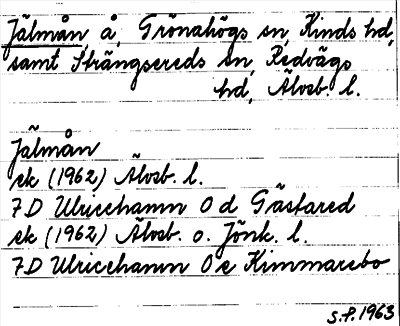 Jälmån, å, Grönahögs sn, Kinds hd,
samt Strängsereds sn, Redvägs
hd, Älvsb. l.
Jälmån
ek (1962) Älvsb. l.
7D Ulricehamn 0 d Gästared
ek (1962) Älvsb. o. Jönk. l.
7D Ulricehamn 0 e Kimmarebo
S.F. 1963